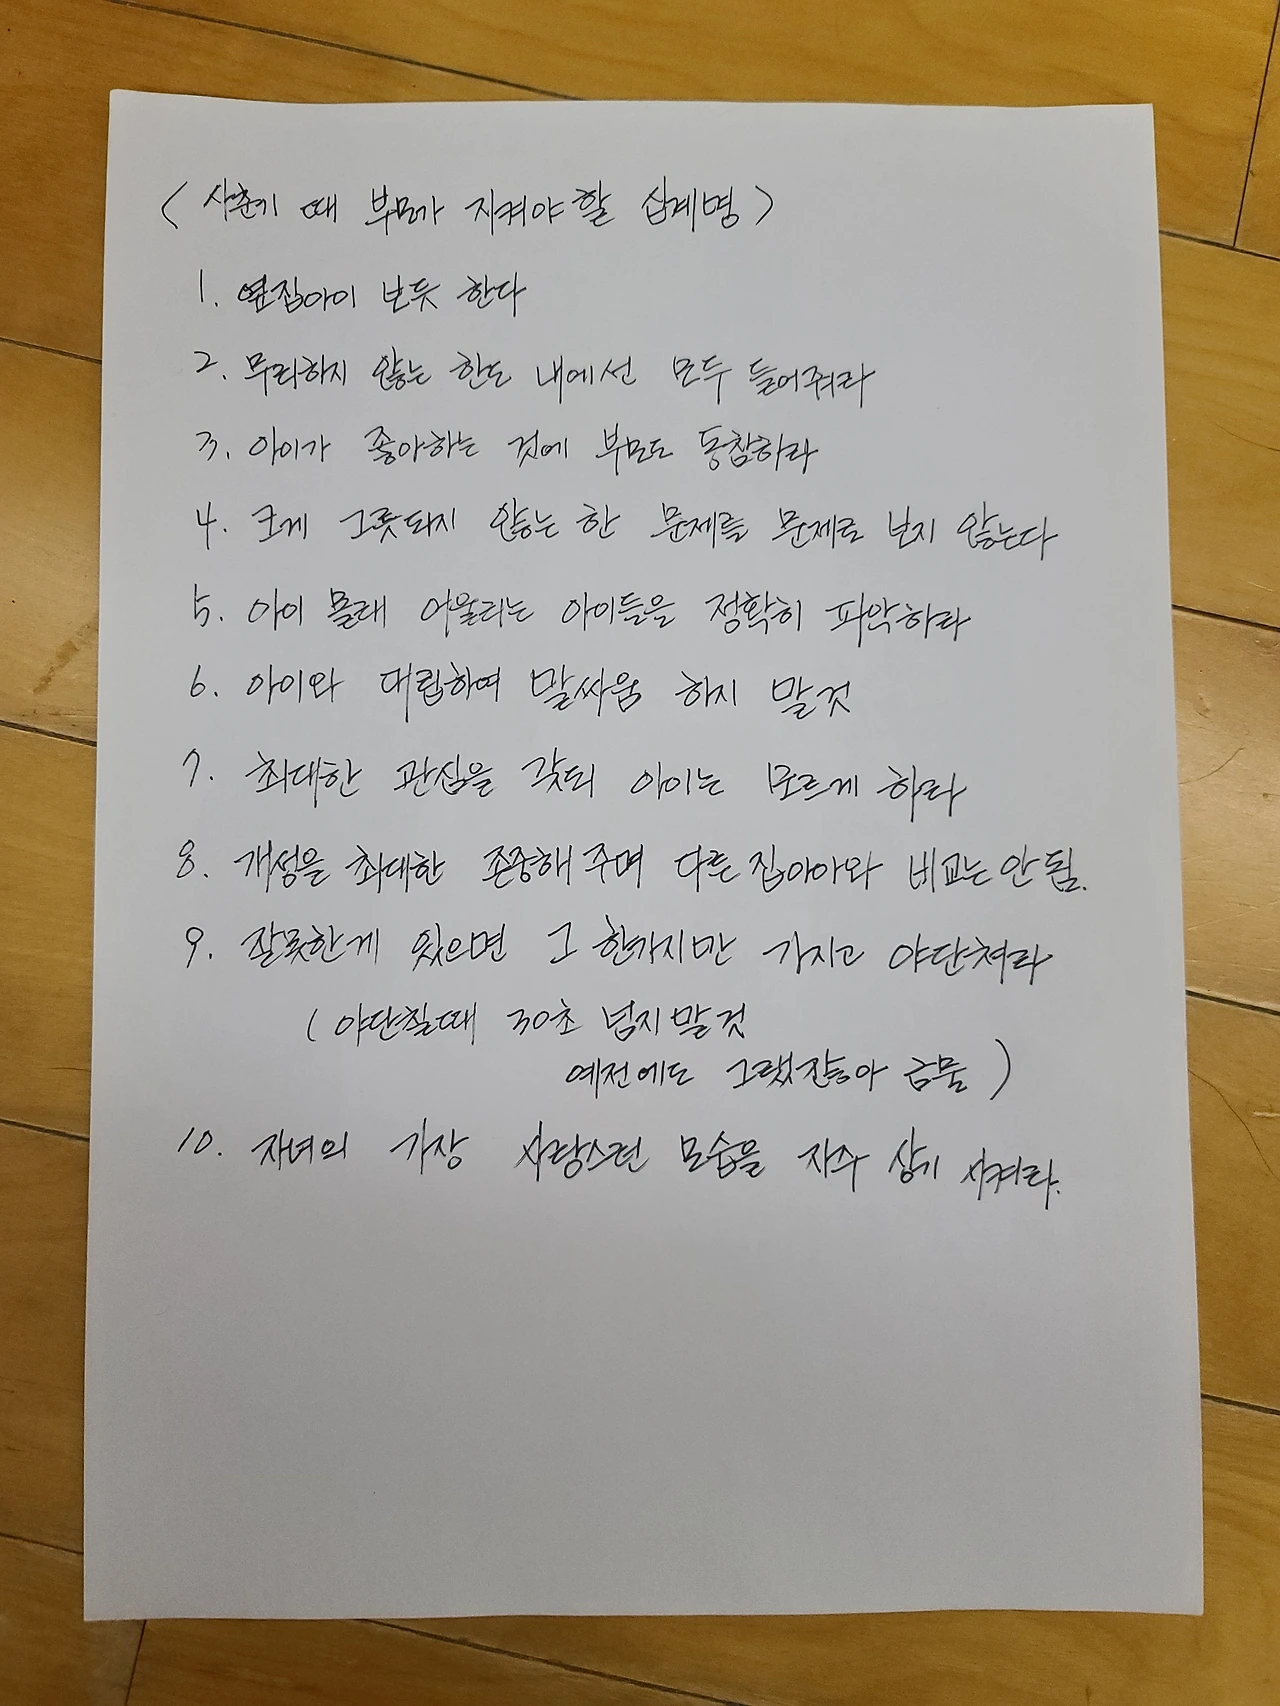 〈 사춘기 때 부모가 지켜야할 십계명 〉
1. 옆집아이 보듯 한다
2. 무리하지 않는 한도 내에선 모두 들어줘라
3. 아이가 좋아하는 것에 부모도 동참하라
4. 크게 그릇되지 않는 한 문제를 문제로 보지 않는다
5. 아이 몰래 어울리는 아이들을 정확히 파악하라
6. 아이와 대립하여 말싸움 하지 말것
7. 최대한 관심을 갖되 아이는 모르게 하라
8. 개성을 최대한 존중해 주며 다른집아아와 비교는 안 됨.
9. 잘못한게 있으면 그 한가지만 가지고 야단쳐라
( 야단칠때 30초 넘지말것
예전에도 그랬잖아 금물 )
10. 자녀의 가장 사랑스런 모습을 자주 상기 시켜라.